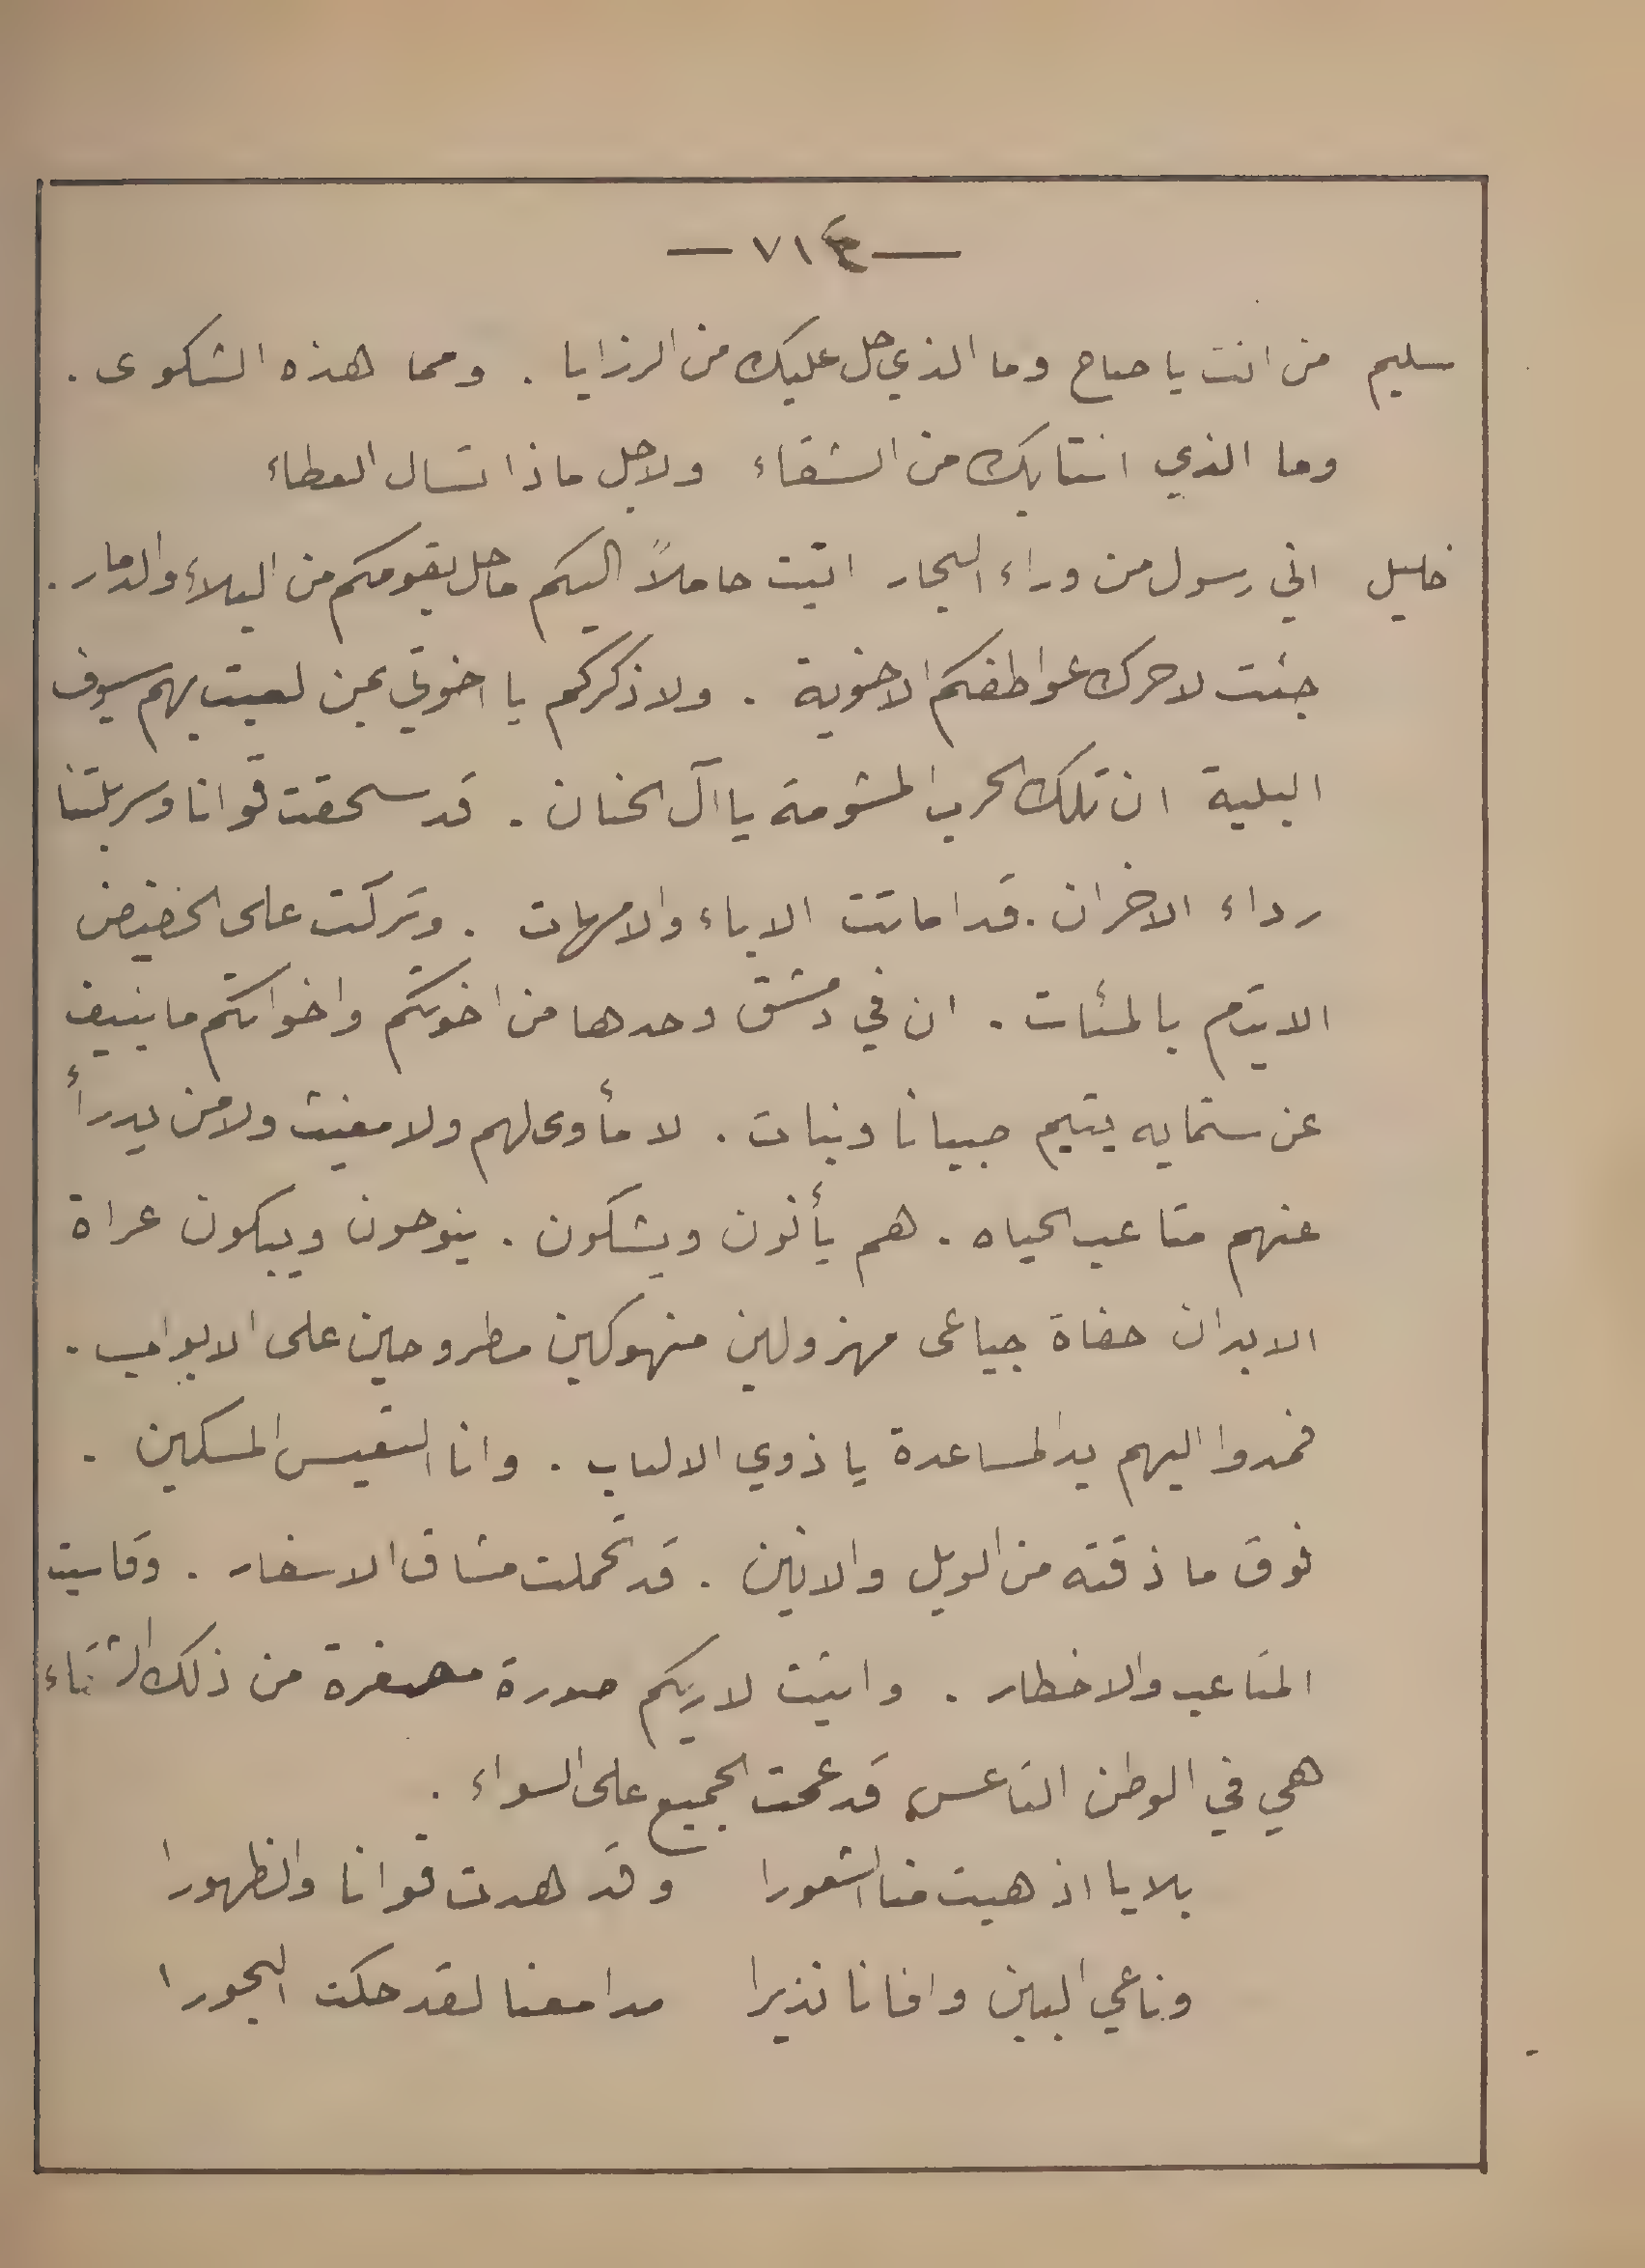 — ٧١٤ —
سليم من انت يا صاح وما الذي حل عليك من الرزايا . ومما هذه الشكوى .
وما الذي انتابك من الشقاء ولاجل ماذا تسال العطاء
خليل اني رسول من وراء البحار اتيت حاملاً اليكم ما حل بقومكم من البلاء والدمار .
جئت لاحرك عواطفكم الاخوية . ولاذكركم يا اخوتي بمن لعبت بهم سيوف
البلية ان تلك الحرب المشومة يا آل الحنان . قد سحقت قوانا وسربلتنا
رداء الاحزان . قد اماتت الاباء والامهات . وتركت على الحضيض
الايتام بالمئات . ان في دمشق وحدها من اخوتكم واخواتكم ما ينيف
عن ستمايه يتيم صبيانا وبنات . لا مأوى لهم ولا مغيث ولا من يدرأ
عنهم متاعب الحياه . هم يأنون ويشكون . ينوحون ويبكون عراة
الابدان حفاة جياعى مهزولين منهوكين مطروحين على الابواب .
فمدوا اليهم يد المساعدة يا ذوي الالباب . وانا التعيس المسكين .
فوق ما ذقته من الويل والانين . قد تحملت مشاق الاسفار . وقاسيت
المتاعب والاخطار . واتيت لاريكم صورة مصغرة من ذلك الشقاء
هي في الوطن التاعس قد عمت الجميع على السواء .
بلايا اذهبت منا الشعورا وقد هدت قوانا والظهورا
وناعي البين وافانا نذيرا مدامعنا لقد حكت البحورا